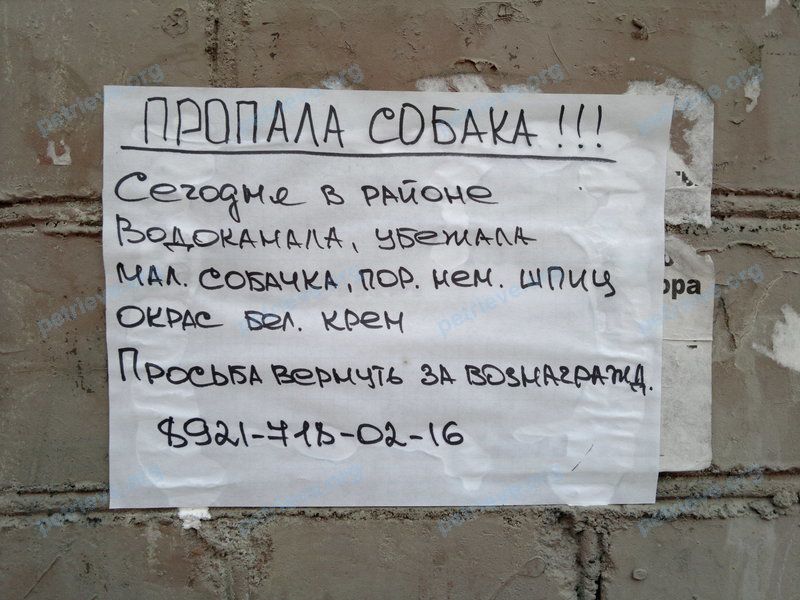 ПРОПАЛА СОБАКА!!!
Сегодня в районе
Водоканала, убежала
мал. собачка, пор. нем. шпиц
окрас бел. крем
Просьба вернуть за вознагражд.
8921-718-02-16
ора
petrieve.org